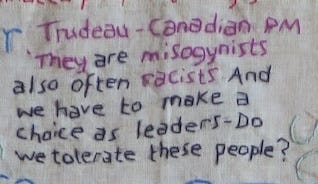 Trudeau - Canadian PM
"They are misogynists
also often racists And
we have to make a
choice as leaders - Do
we tolerate these people?